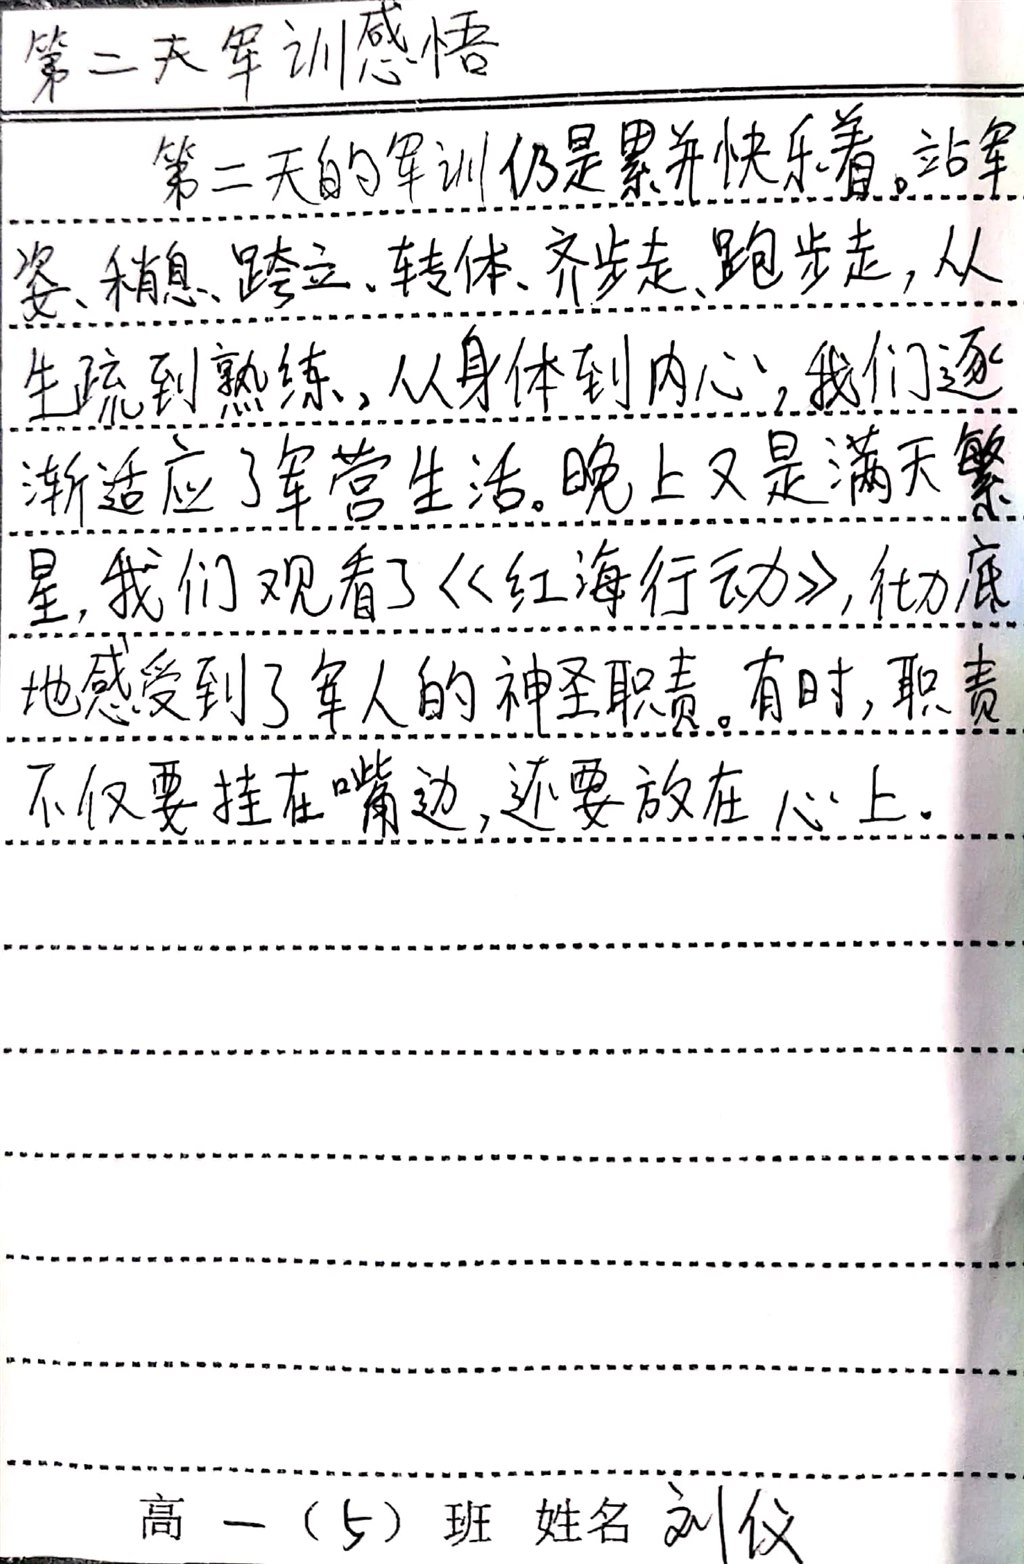 第二天军训感悟
第二天的军训仍是累并快乐着。站军
姿、稍息、跨立、转体、齐步走、跑步走，从
生疏到熟练，从身体到内心，我们逐
渐适应了军营生活。晚上又是满天繁
星，我们观看了《红海行动》，彻底
地感受到了军人的神圣职责。有时，职责
不仅要挂在嘴边，还要放在心上.
高一（5）班 姓名 刘仪